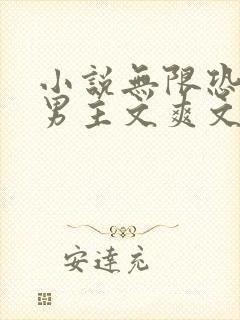 小說無限恐
男主文爽文
安達充